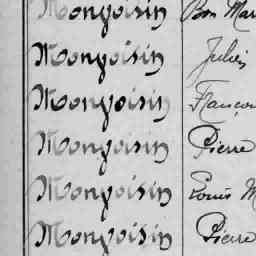 Mongoisin Bon Mar
Mongoisin Julien
Mongoisin Françoi
Mongoisin Pierre
Mongoisin Louis M
Mongoisin Pierre